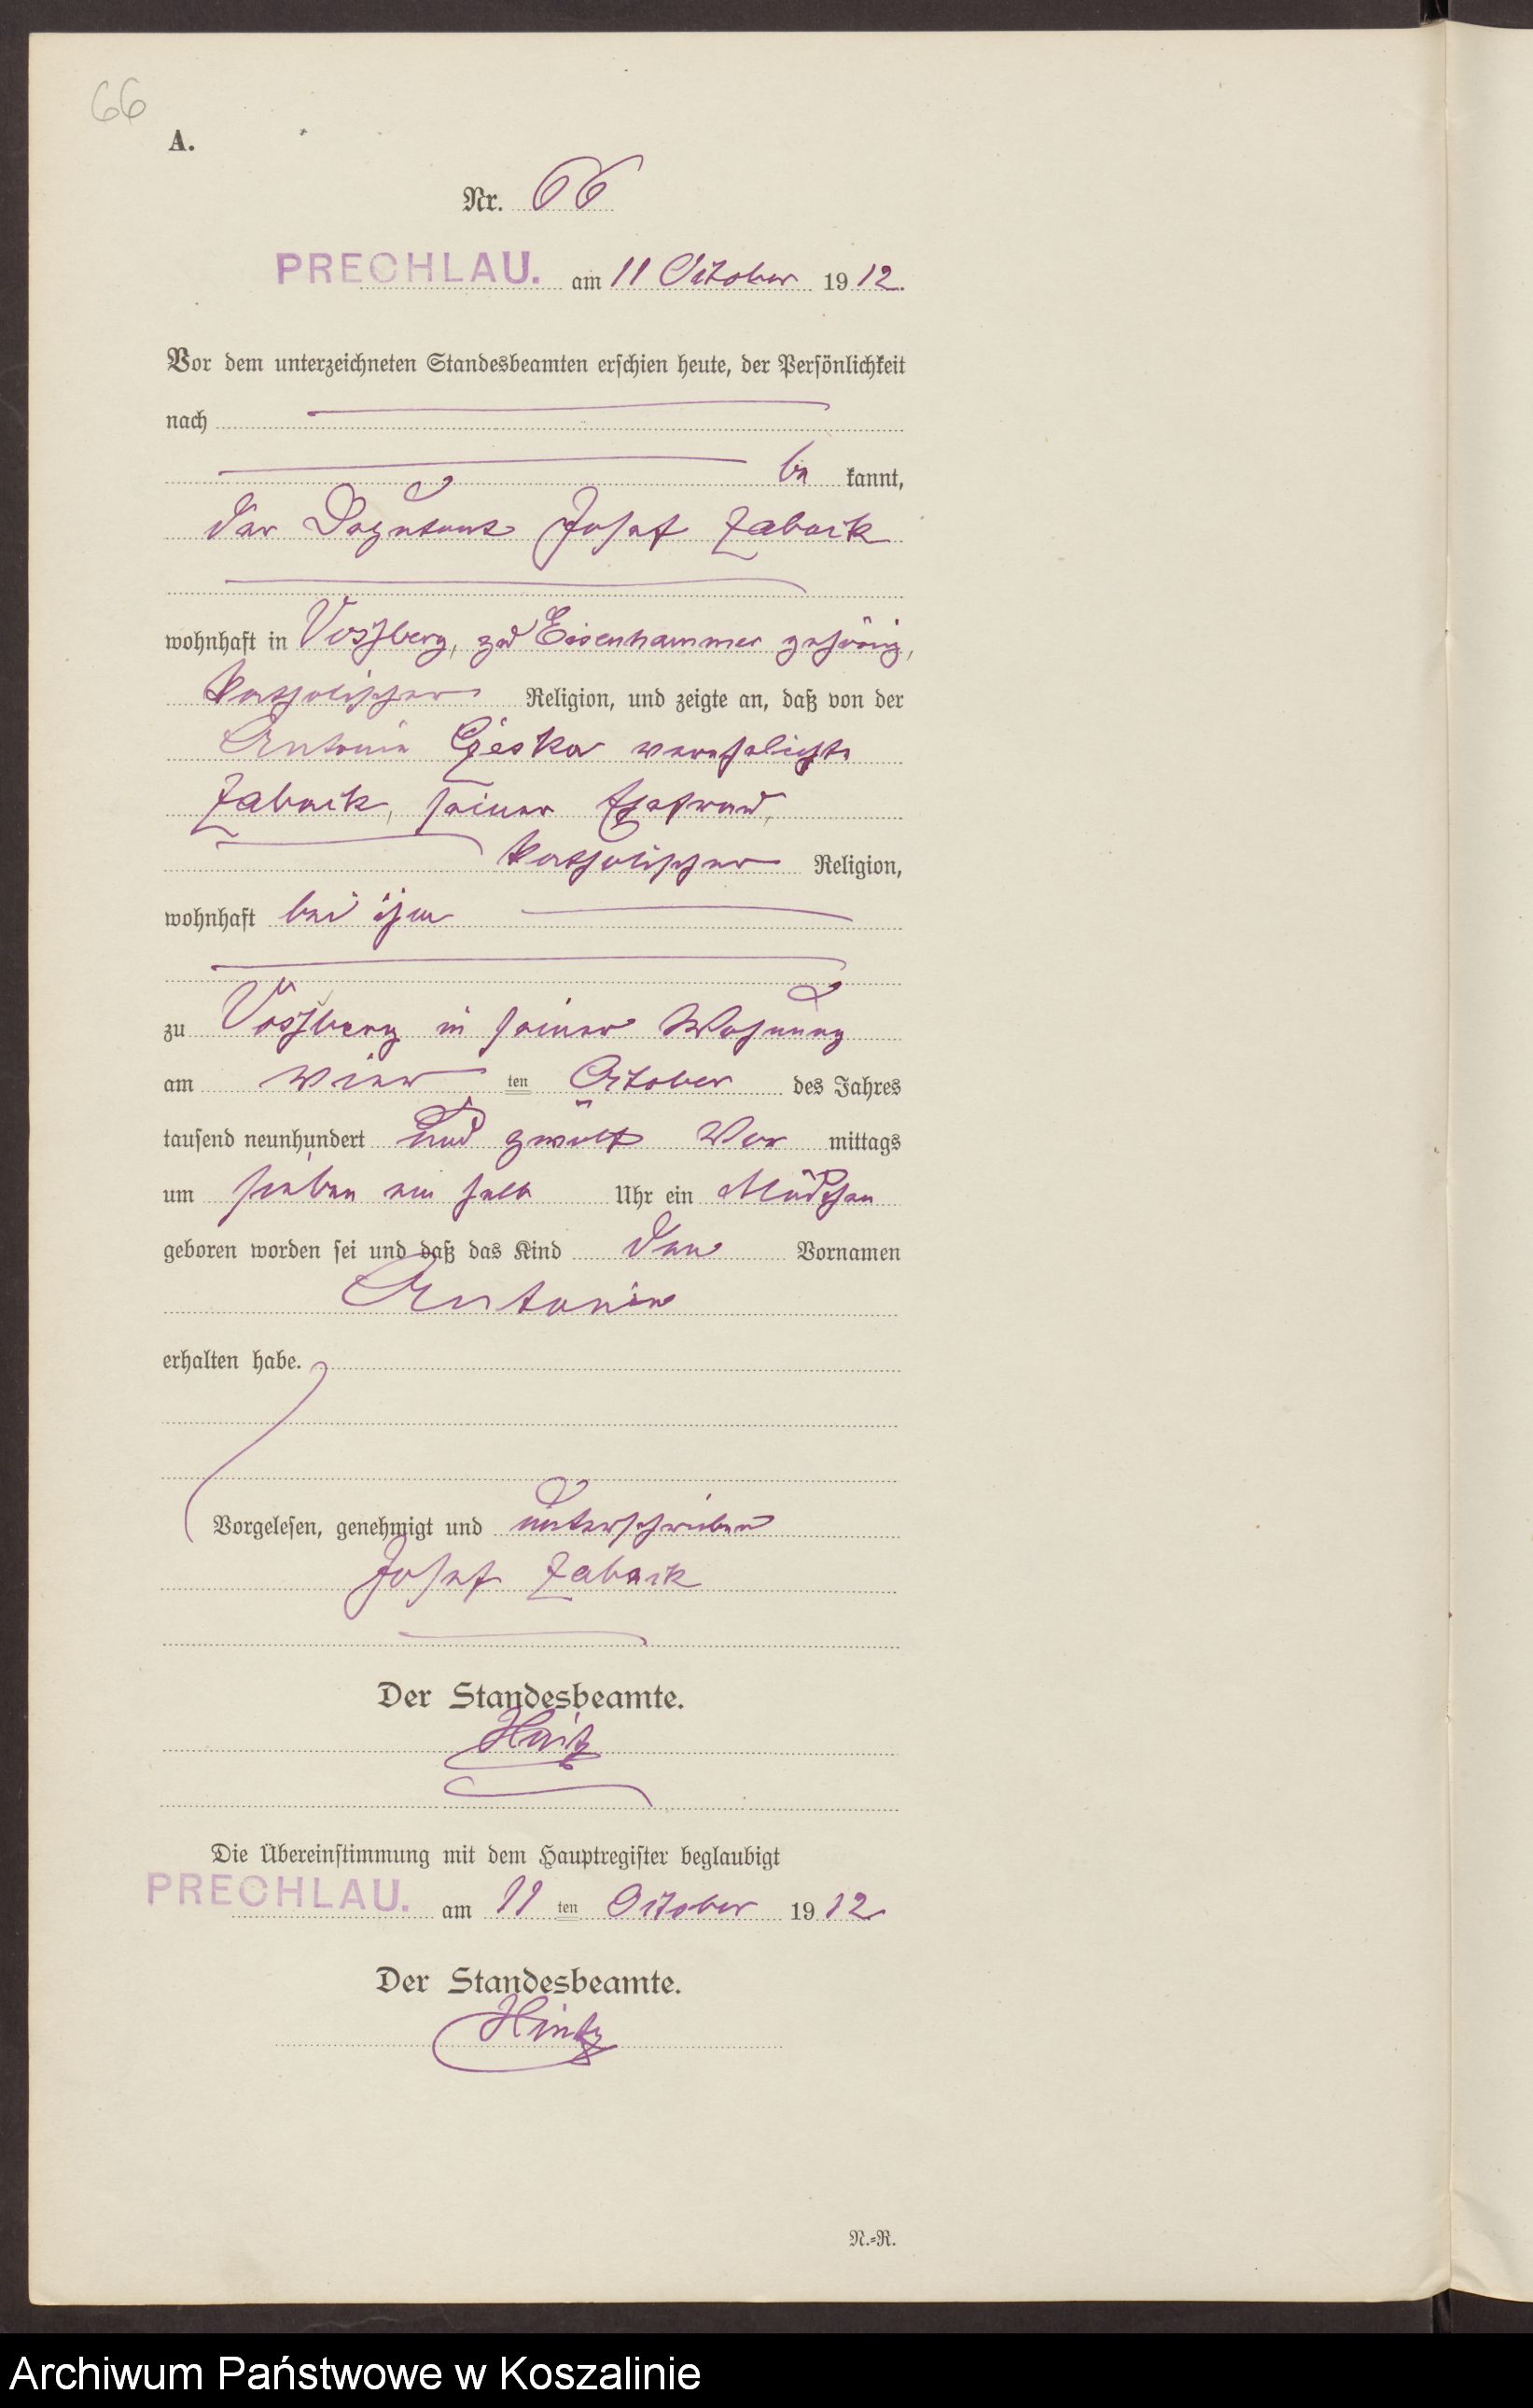 66
A.
Nr. 66
PRECHLAU. am 11 October 1912.
Vor dem unterzeichneten Standesbeamten erschien heute, der Persönlichkeit
nach
be kannt,
der Josef Zabock
wohnhaft in Vossberg, zu Eisenhammer gehörig,
katholischer Religion, und zeigte an, daß von der
Antonie verehelichte
seiner Ehefrau,
katholischer Religion,
wohnhaft bei ihm
zu Vossberg in seiner Wohnung
am vier ten October des Jahres
tausend neunhundert und zwölf Vor mittags
um sieben ein halb Uhr ein Mädchen
geboren worden sei und daß das Kind den Vornamen
Antonie
erhalten habe.
Vorgelesen, genehmigt und unterschrieben
Josef
Der Standesbeamte.
Hintz
Die Übereinstimmung mit dem Hauptregister beglaubigt
PRECHLAU. am 11 ten October 1912
Der Standesbeamte.
Hintz
N.=R.
Archiwum Państwowe w Koszalinie